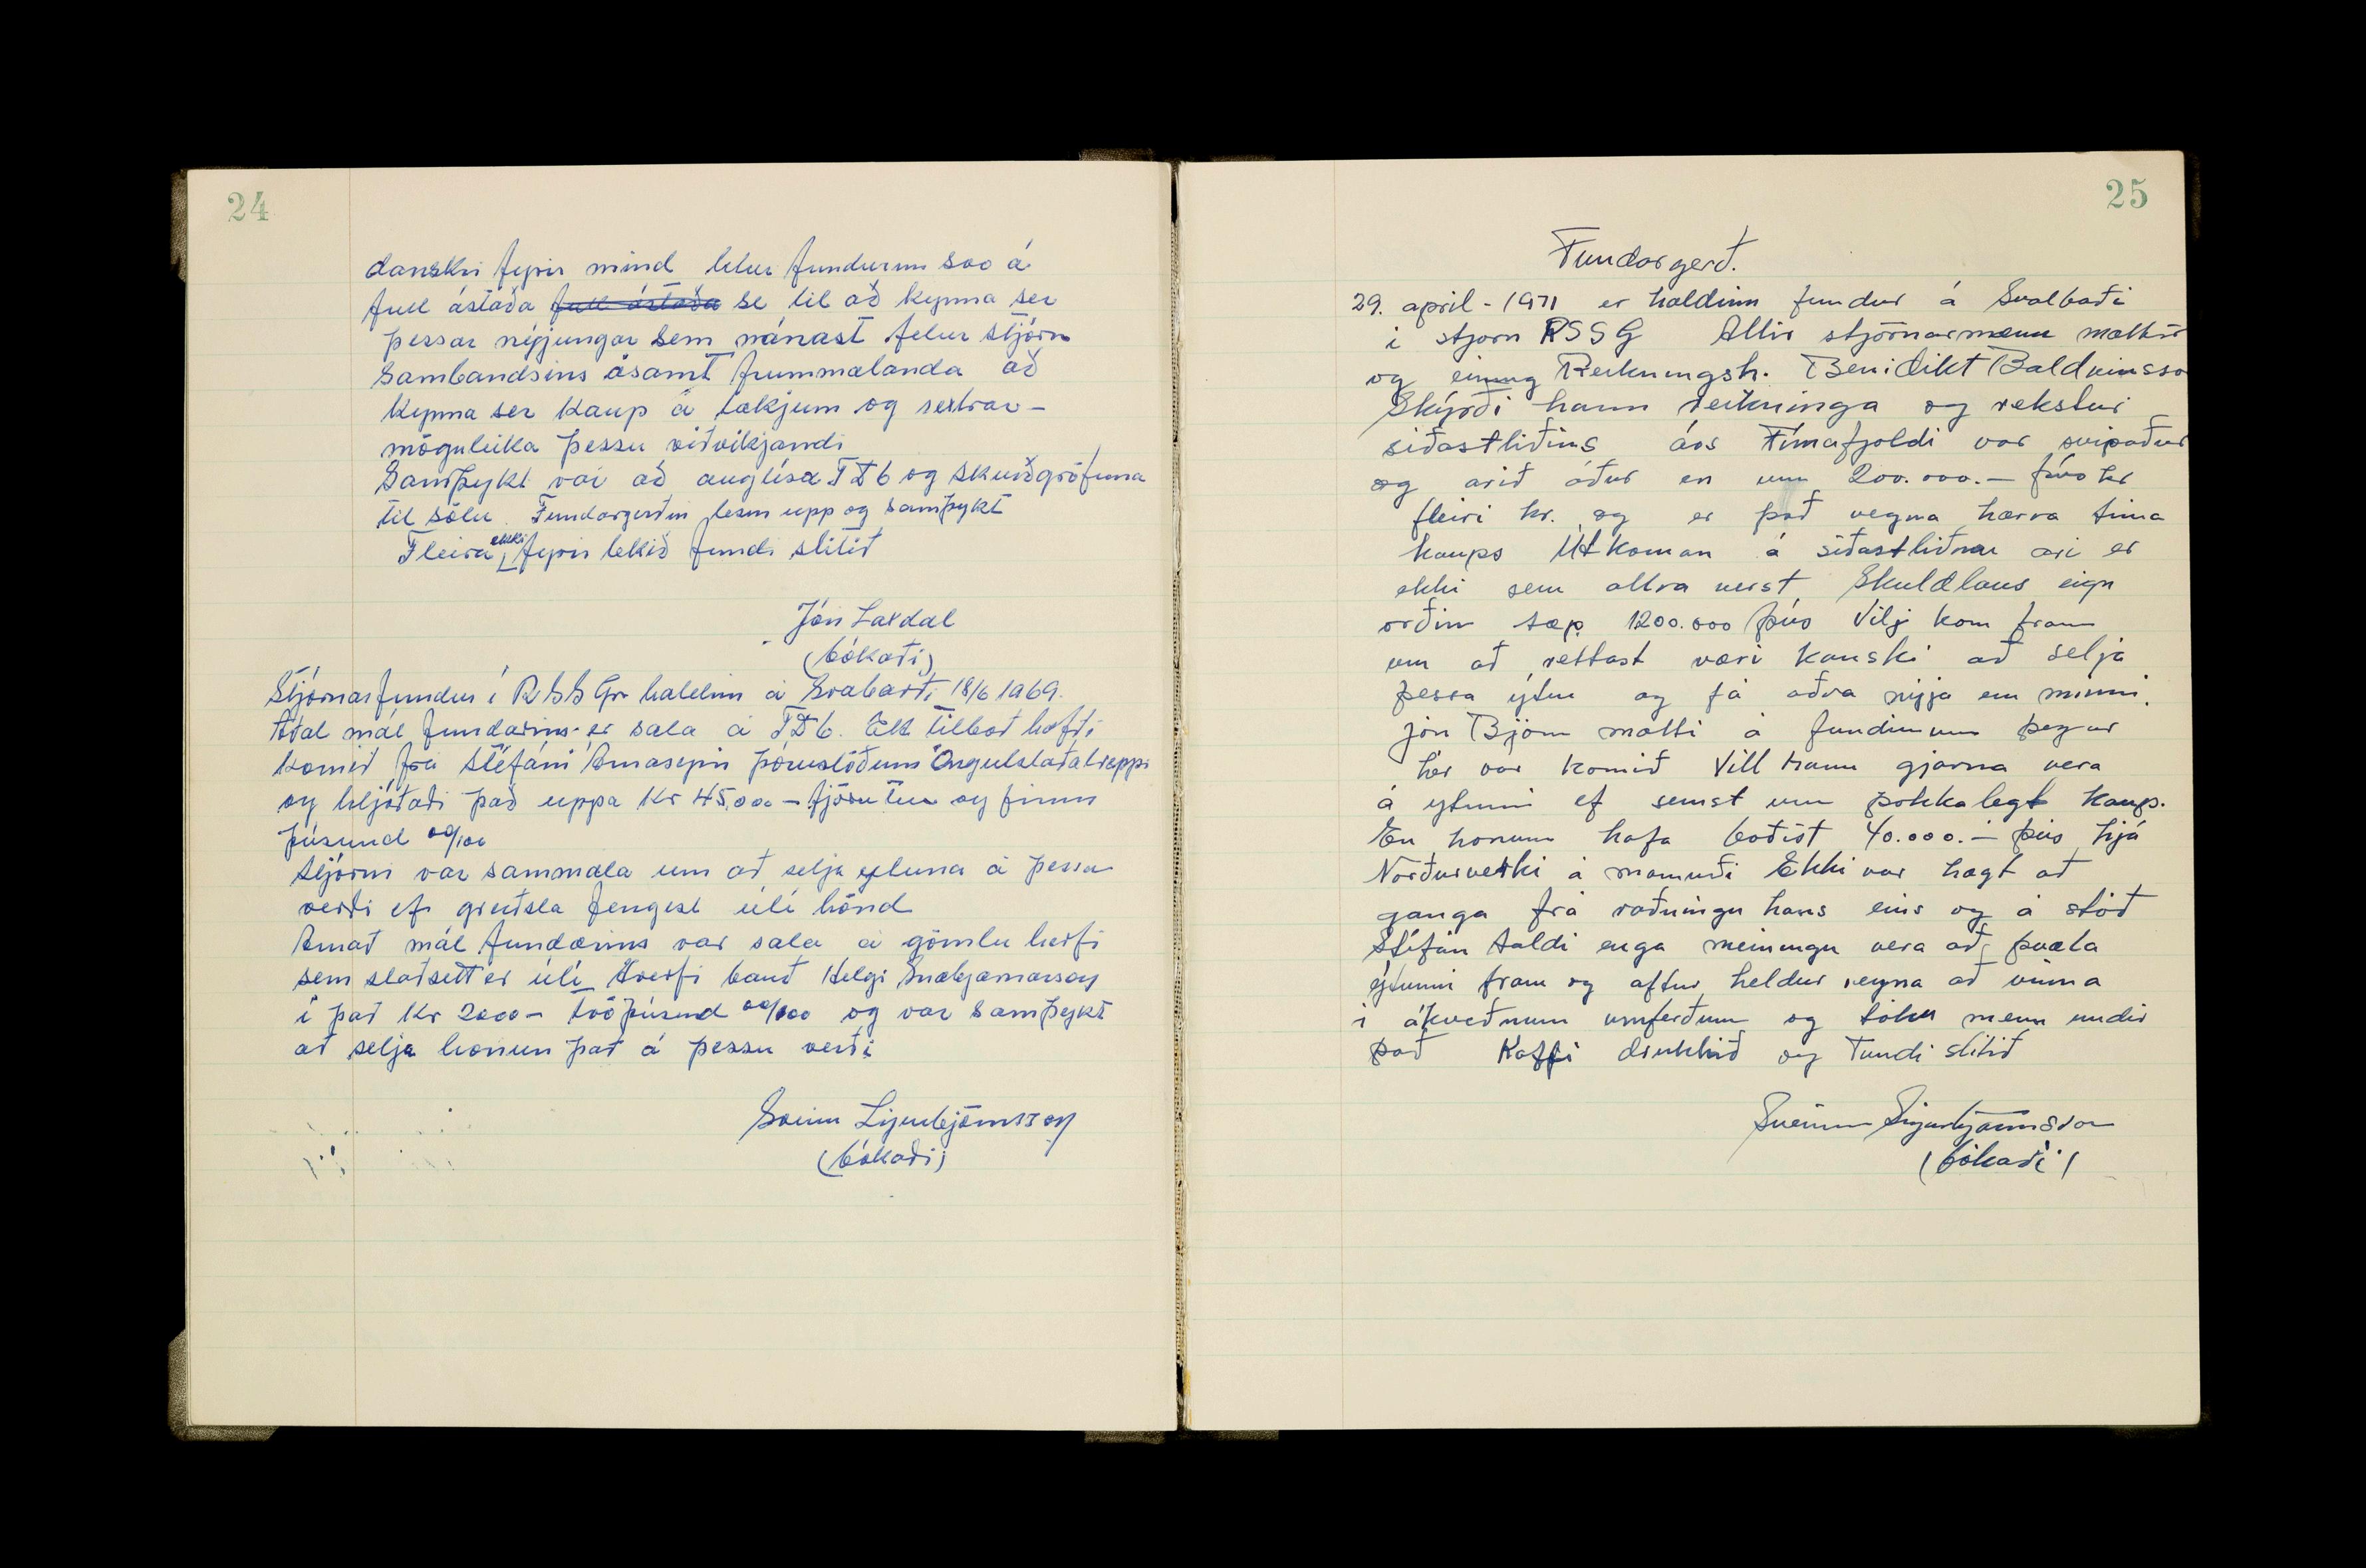 24
danskri fyrir mind telur fundurinn svo á
full ástæða full ástæða se til að kynna ser
þessar nýjungar sem nánast felur stjórn
Sambandsins ásamt frummælanda að
kynna ser kaup á tækjum og rextrar-
möguleika þessu viðvikjandi
Samþykt var að auglýsa TD6 og skurðgröfuna
til sölu. Fundargerðin lesin upp og samþykt
Fleira ekki fyrir tekið fundi slitið
Jón Laxdal
(bókaði)
Stjórnarfundur í RSS Gr haldinn á Svabarði 18/6 1969.
Aðal mál fundarins er sala á TD6. Eitt tilboð hafði
komið frá Stefáni Árnasyni Þórustöðum Öngulstaðahreppi
og hljóðaði það uppá Kr 45,000 - fjörutíu og fimm
þúsund 00/100
Stjórnin var sammála um að selja ytuna á þessu
verði ef greiðsla fengist útí hönd
Annað mál fundarins var sala á gömlu herfi
sem staðsett er útí Hverfi bauð Helgi Snæbjarnarson
í það Kr 2000- tvöþúsund 00/100 og var samþykt
að selja honum það á þessu verði
Sveinn Sigurbjörnsson
(bókaði)
25
Fundargerð.
29. april - 1971 er haldinn fundur á Svalbaði
i stjorn RSSG Allir stjórnarmenn mættir
og einnig Reikningsh. Benidikt Baldvinsso
Skýrði hann reikninga og rekstur
siðastliðins árs Tímafjoldi var svipaður
og arið áður en um 200.000.- þús kr
fleiri kr. og er það vegna hærra tima
kaups Útkoman á siðastliðnu ari er
ekki sem allra verst Skuldlaus eign
orðin tæp 1200.000 þús Vilj kom fram
um að rettast væri kanski að selja
þessa ýtu og fá aðra nýja en minni.
Jón Björn mætti á fundinum þegar
hér var komið Vill hann gjarna vera
á ytunni ef semst um þokkalegt kaup.
En honum hafa boðist 40.000.- þús hjá
Norðurverki á manuði Ekki var hægt að
ganga frá raðningu hans eins og á stóð
Stefán taldi enga meiningu vera að þvæla
ýtunni fram og aftur heldur reyna að vinna
i ákveðnum umferðum og tóku menn undir
það Kaffi drukkið og Fundi slitið
Sveinn Sigurbjörnsson
(bókaði)